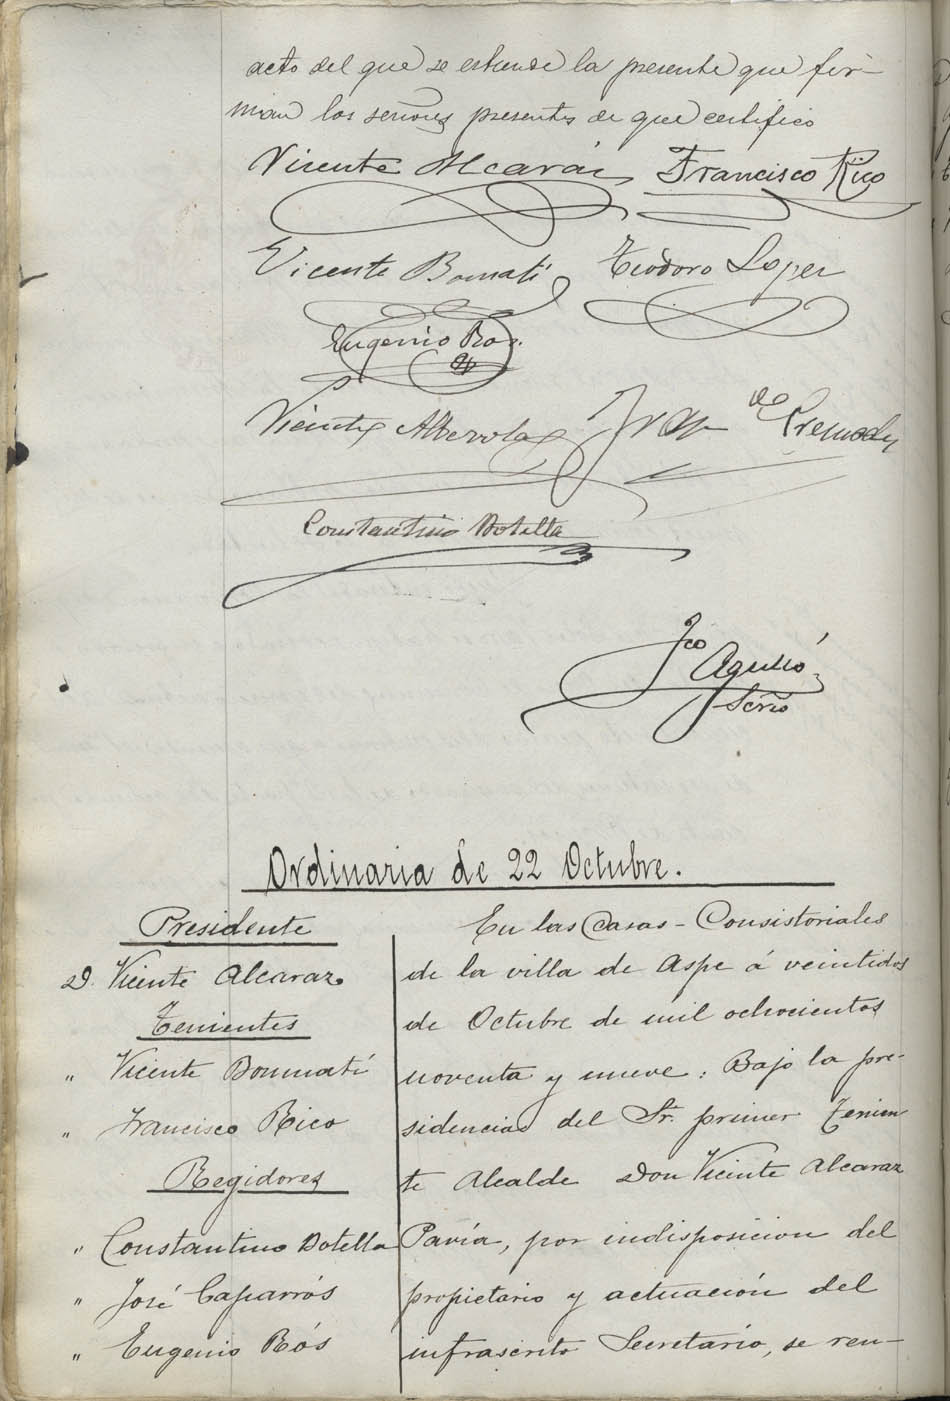 acto del que se estiende la presente que fir-
man los señores presentes de que certifico
Vicente Alcaráz Francisco Rico
Vicente Bonmatí Teodoro Lopez
Eugenio Ros.
Vicente Alberola de Cremades
Constantino Botella
Fco Agulló
Scrio
Ordinaria de 22 Octubre.
Presidente
D. Vicente Alcaraz
Tenientes
" Vicente Bonmatí
" Francisco Rico
Regidores
" Constantino Botella
" José Caparrós
" Eugenio Rós
En las Casas - Consistoriales
de la villa de Aspe á veintidos
de Octubre de mil ochocientos
noventa y nueve: Bajo la pre-
sidencia del Sr. primer Tenien
te Alcalde Don Vicente Alcaraz
Pavía, por indisposicion del
propietario y actuación del
infrascrito Secretario, se reu-